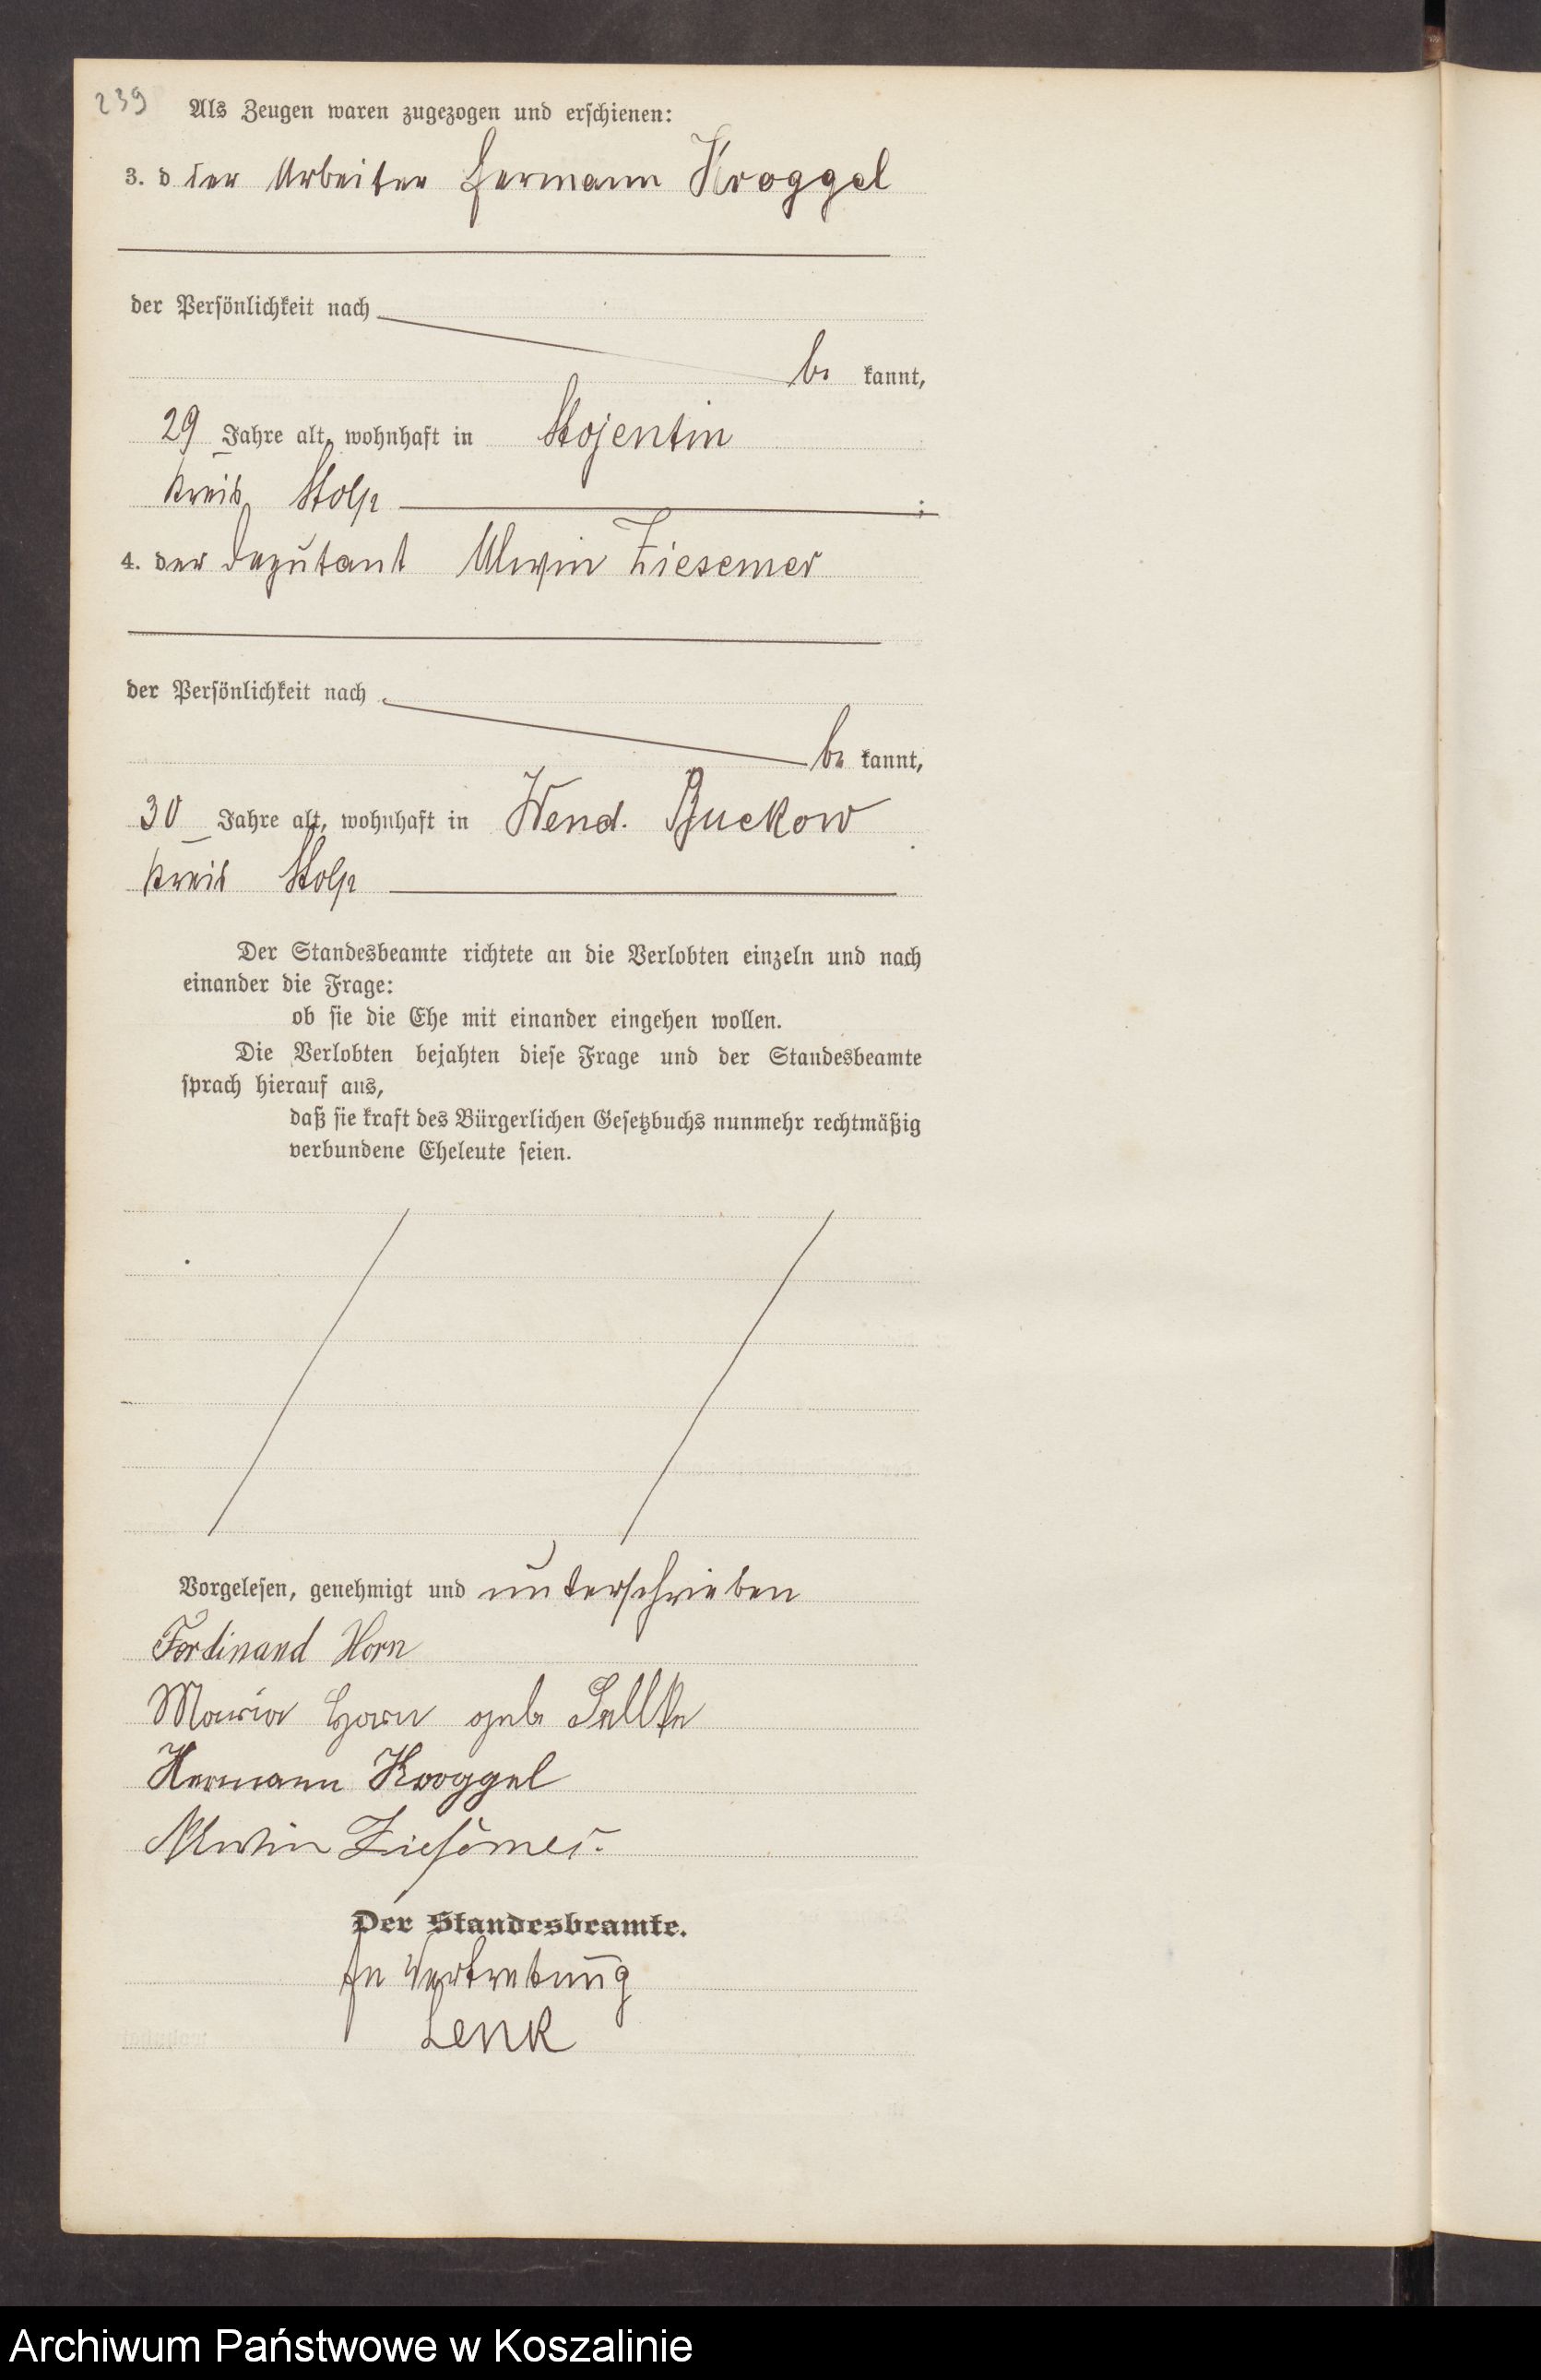 239
Als Zeugen waren zugezogen und erschienen:
3. d der Arbeiter Hermann Kroggel
der Persönlichkeit nach
be kannt,
29 Jahre alt, wohnhaft in Stojentin
Kreis Stolp ;
4. der Deputant Alwin Ziesemer
der Persönlichkeit nach
be kannt,
30 Jahre alt, wohnhaft in Wend. Buckow
Kreis Stolp
Der Standesbeamte richtete an die Verlobten einzeln und nach
einander die Frage:
ob sie die Ehe mit einander eingehen wollen.
Die Verlobten bejahten diese Frage und der Standesbeamte
sprach hierauf aus,
daß sie kraft des Bürgerlichen Gesetzbuchs nunmehr rechtmäßig
verbundene Eheleute seien.
Vorgelesen, genehmigt und unterschrieben
Ferdinand Horn
Maria Horn geb Sellke
Hermann Kroggel
Alwin Ziesemer.
Der Standesbeamte.
In Vertretung
Lenk
Archiwum Państwowe w Koszalinie